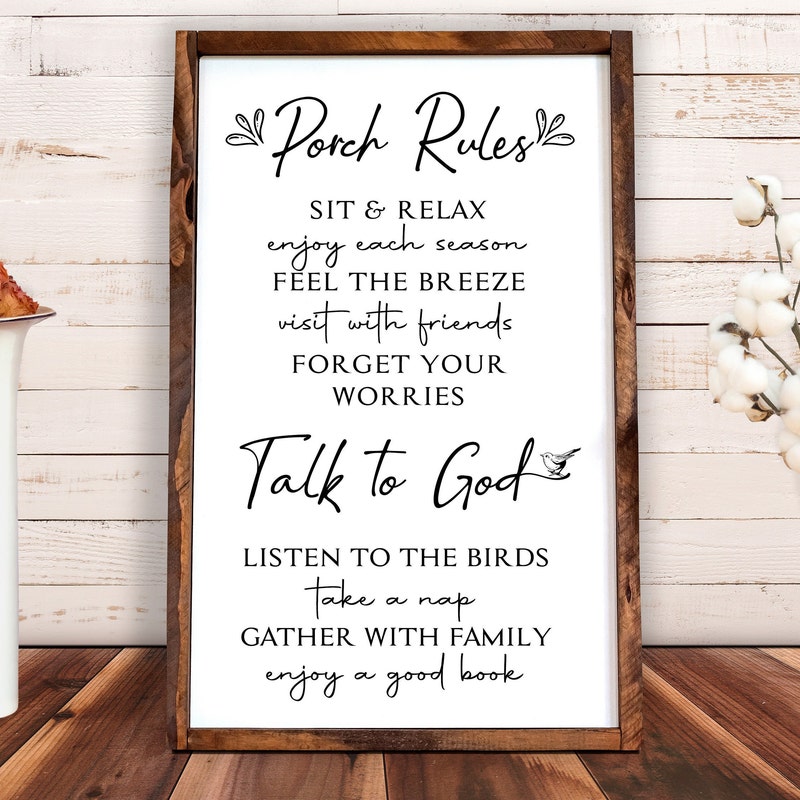 Porch Rules
SIT & RELAX
enjoy each season
FEEL THE BREEZE
visit with friends
FORGET YOUR
WORRIES
Talk to God
LISTEN TO THE BIRDS
take a nap
GATHER WITH FAMILY
enjoy a good book